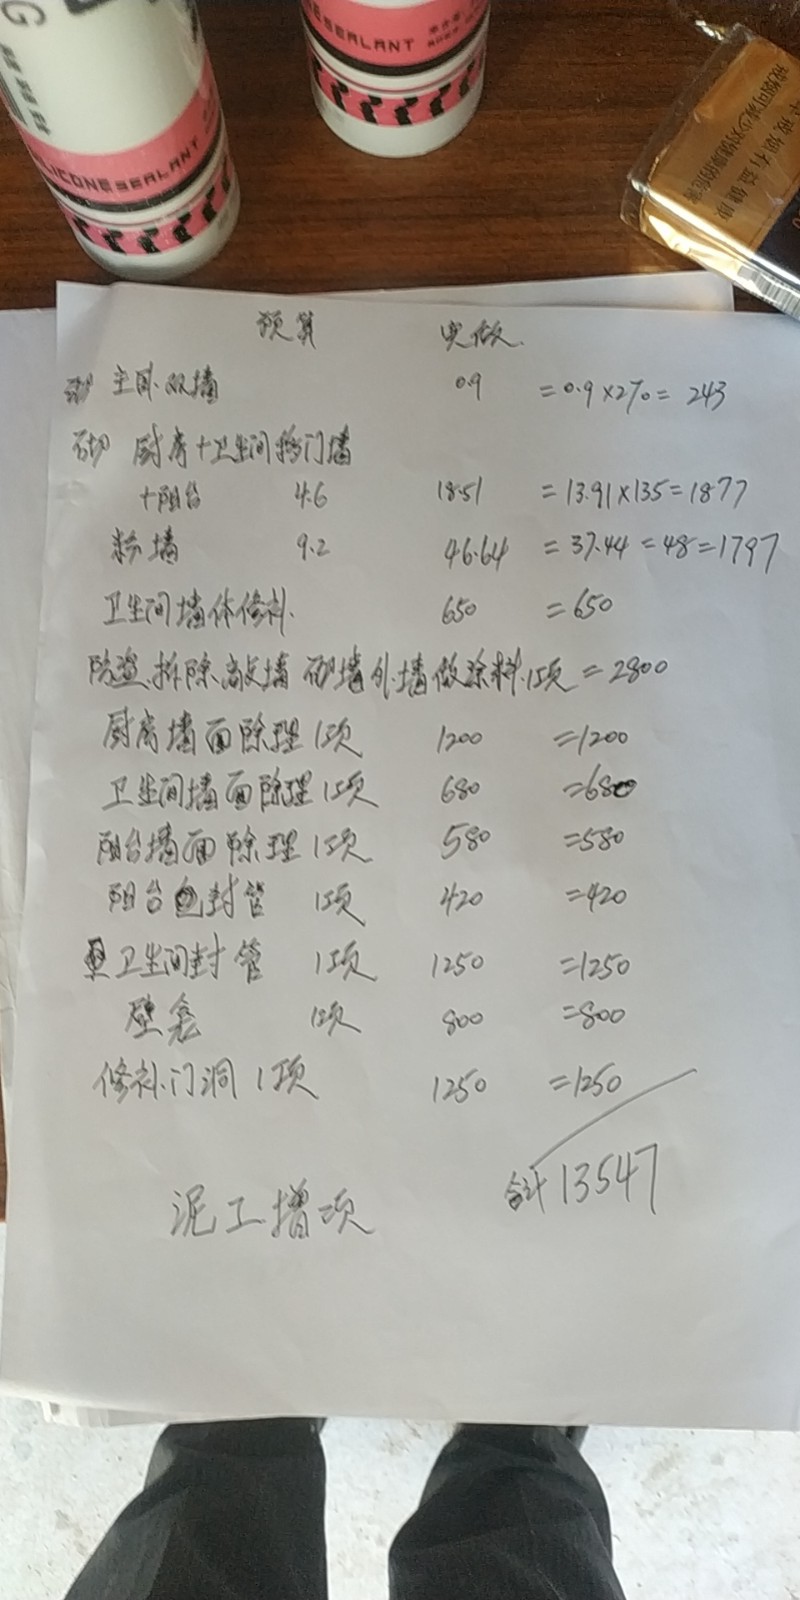 SILICONE SEALANT
SEALANT
戒烟可减少对健康的危害
戒烟有益健康
预算 实做
砌 主卧双墙 0.9 =0.9×270= 243
砌 厨房+卫生间移门墙
+阳台 4.6 18.51 =13.91×135=1877
粉墙 9.2 46.64 =37.44=48=1797
卫生间墙体修补 650 =650
防盗 拆除敲墙 砌墙外墙做涂料 1项 =2800
厨房墙面除理 1项 1200 =1200
卫生间墙面除理 1项 680 =680
阳台墙面除理 1项 580 =580
阳台包封管 1项 420 =420
卫生间封管 1项 1250 =1250
壁龛 1项 800 =800
修补门洞 1项 1250 =1250
合计 13547
泥工增项